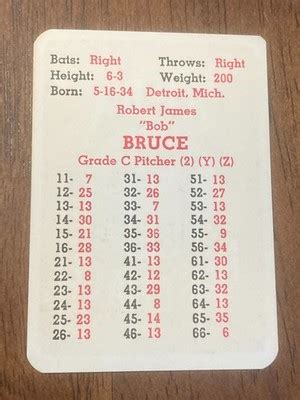 Bats: Right Throws: Right
Height: 6-3 Weight: 200
Born: 5-16-34 Detroit, Mich.
Robert James
"Bob"
BRUCE
Grade C Pitcher (2) (Y) (Z)
11- 7 31- 13 51- 13
12- 25 32- 26 52- 27
13- 13 33- 13 53- 13
14- 30 34- 31 54- 32
15- 31 35- 9 55- 9
16- 28 36- 33 56- 34
21- 13 41- 13 61- 13
22- 8 42- 12 62- 13
23- 13 43- 29 63- 32
24- 13 44- 8 64- 13
25- 23 45- 14 65- 35
26- 13 46- 13 66- 6